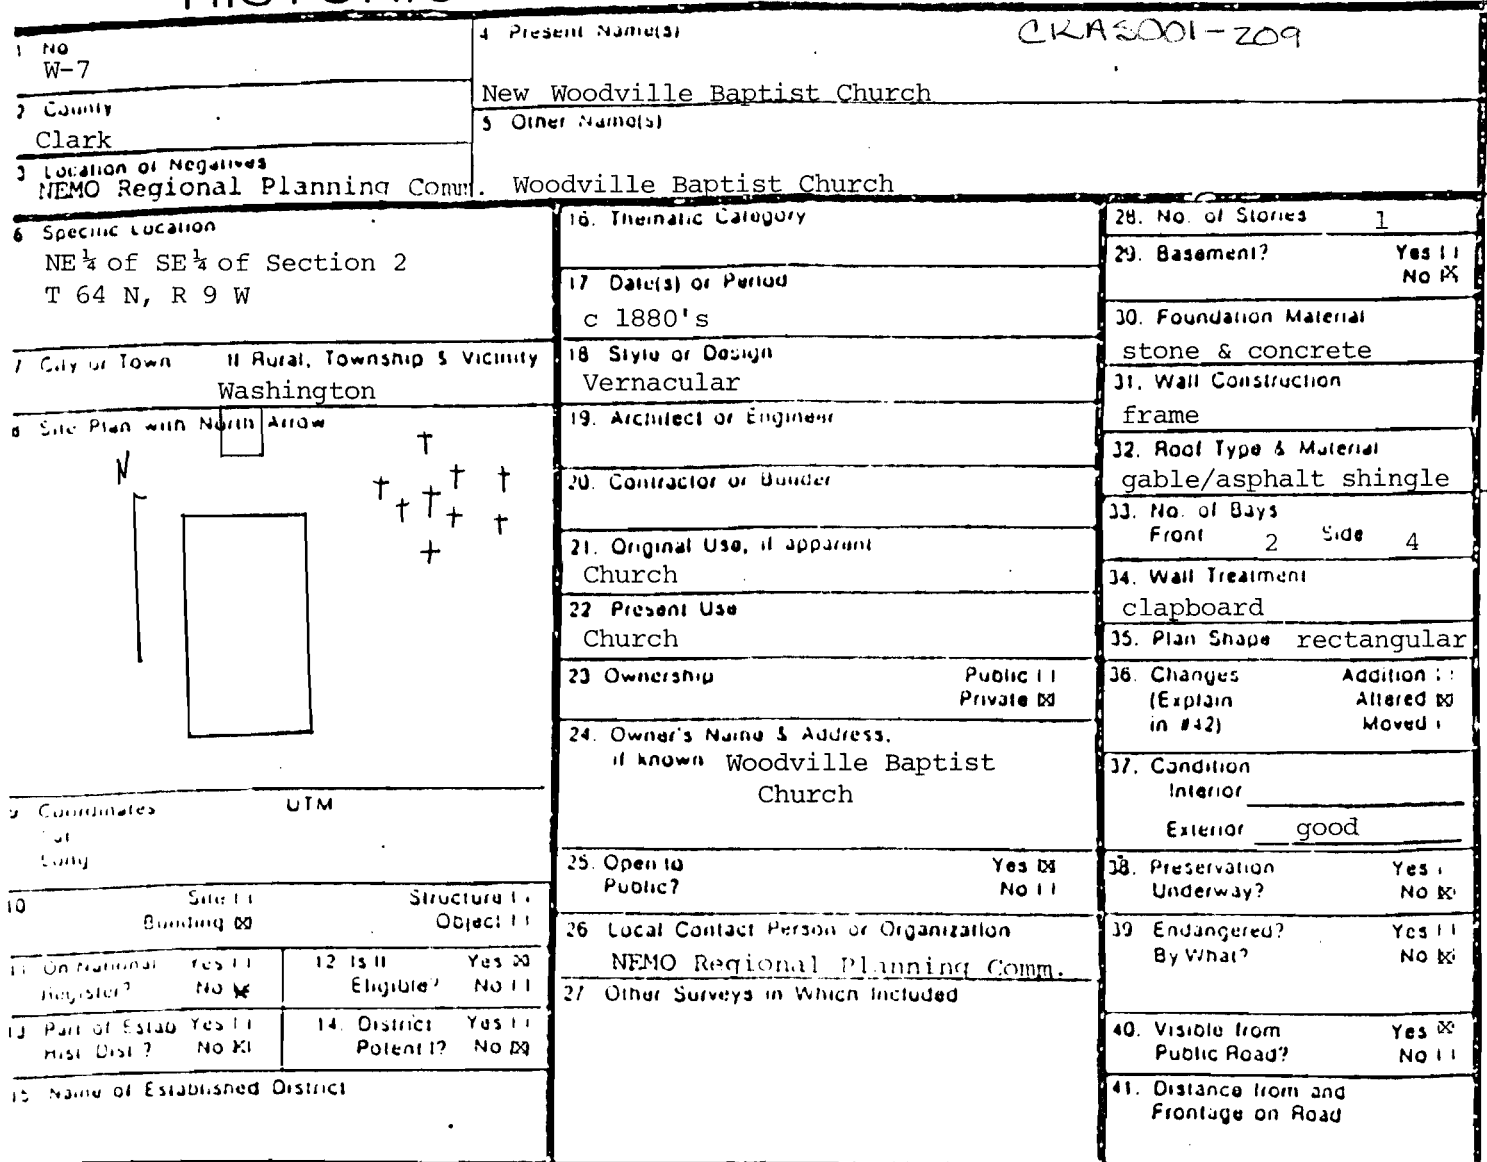 CKAS001-209
1 No
W-7
2 County
Clark
3 Location of Negatives
NEMO Regional Planning Comm.
4 Present Name(s)
New Woodville Baptist Church
5 Other Name(s)
Woodville Baptist Church
6 Specific Location
NE ¼ of SE ¼ of Section 2
T 64 N, R 9 W
7 City or Town If Rural, Township & Vicinity
Washington
8 Site Plan with North Arrow
N
9 Coordinates UTM
Lat
Long
10 Site [ ] Structure [ ]
Building [x] Object [ ]
11 On National Yes [ ]
Register? No [x]
12 Is It Yes [x]
Eligible? No [ ]
13 Part of Estab Yes [ ]
Hist. Dist.? No [x]
14. District Yes [ ]
Potent'l? No [x]
15 Name of Established District
16. Thematic Category
17 Date(s) or Period
c 1880's
18 Style or Design
Vernacular
19. Architect or Engineer
20. Contractor or Builder
21. Original Use, if apparent
Church
22 Present Use
Church
23 Ownership Public [ ]
Private [x]
24. Owner's Name & Address,
if known Woodville Baptist
Church
25. Open to Yes [x]
Public? No [ ]
26 Local Contact Person or Organization
NEMO Regional Planning Comm.
27 Other Surveys in Which Included
28. No. of Stories 1
29. Basement? Yes [ ]
No [x]
30. Foundation Material
stone & concrete
31. Wall Construction
frame
32. Roof Type & Material
gable/asphalt shingle
33. No. of Bays
Front 2 Side 4
34. Wall Treatment
clapboard
35. Plan Shape rectangular
36. Changes Addition [ ]
(Explain Altered [x]
in #42) Moved [ ]
37. Condition
Interior
Exterior good
38. Preservation Yes [ ]
Underway? No [x]
39 Endangered? Yes [ ]
By What? No [x]
40. Visible from Yes [x]
Public Road? No [ ]
41. Distance from and
Frontage on Road